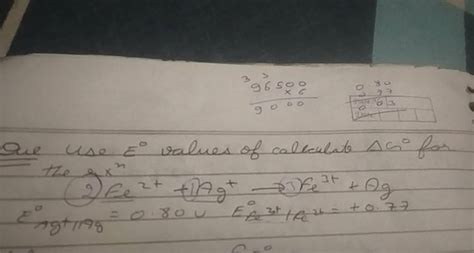 3 3
96500
×6
9000
0.80
0.03
Que Use E° values of calculate ΔG° for
the rxⁿ
2Fe²⁺ + 1Ag⁺ → Fe³⁺ + Ag
E°Ag⁺/Ag = 0.80 v E°Fe³⁺/Fe²⁺ = +0.77